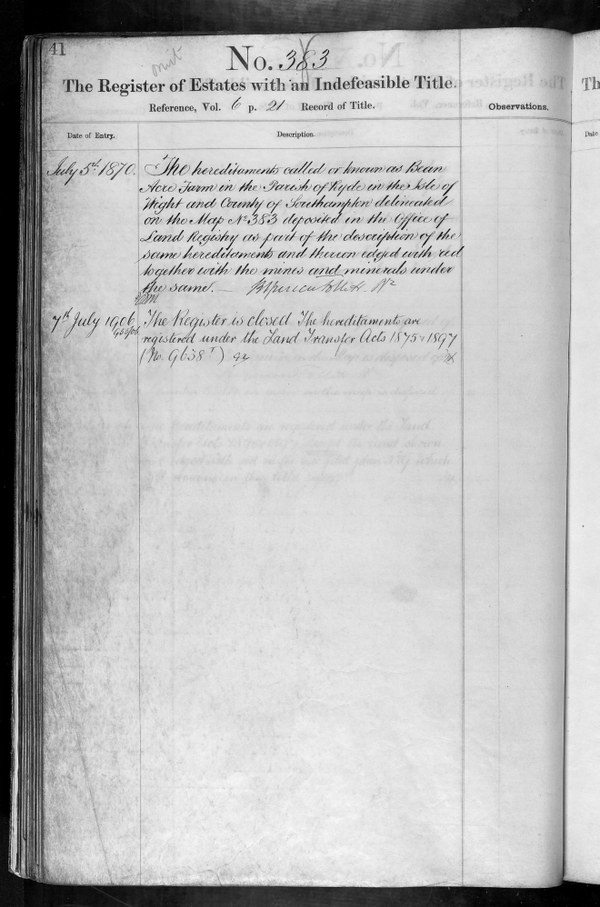 41
No. 383
The Register of Estates with an Indefeasible Title.
Reference, Vol. 6 p. 21 Record of Title.
Observations.
Date of Entry.
Description
July 5th 1870.
The hereditaments called or known as Bean
Acre Farm in the Parish of Ryde in the Isle of
Wight and County of Southampton delineated
on the Map No 383 deposited in the Office of
Land Registry as part of the description of the
same hereditaments and thereon edged with red
together with the mines and minerals under
the same.
7th July 1906
The Register is closed The hereditaments are
registered under the Land Transfer Acts 1875 & 1897
(No. 9638
Th
Date